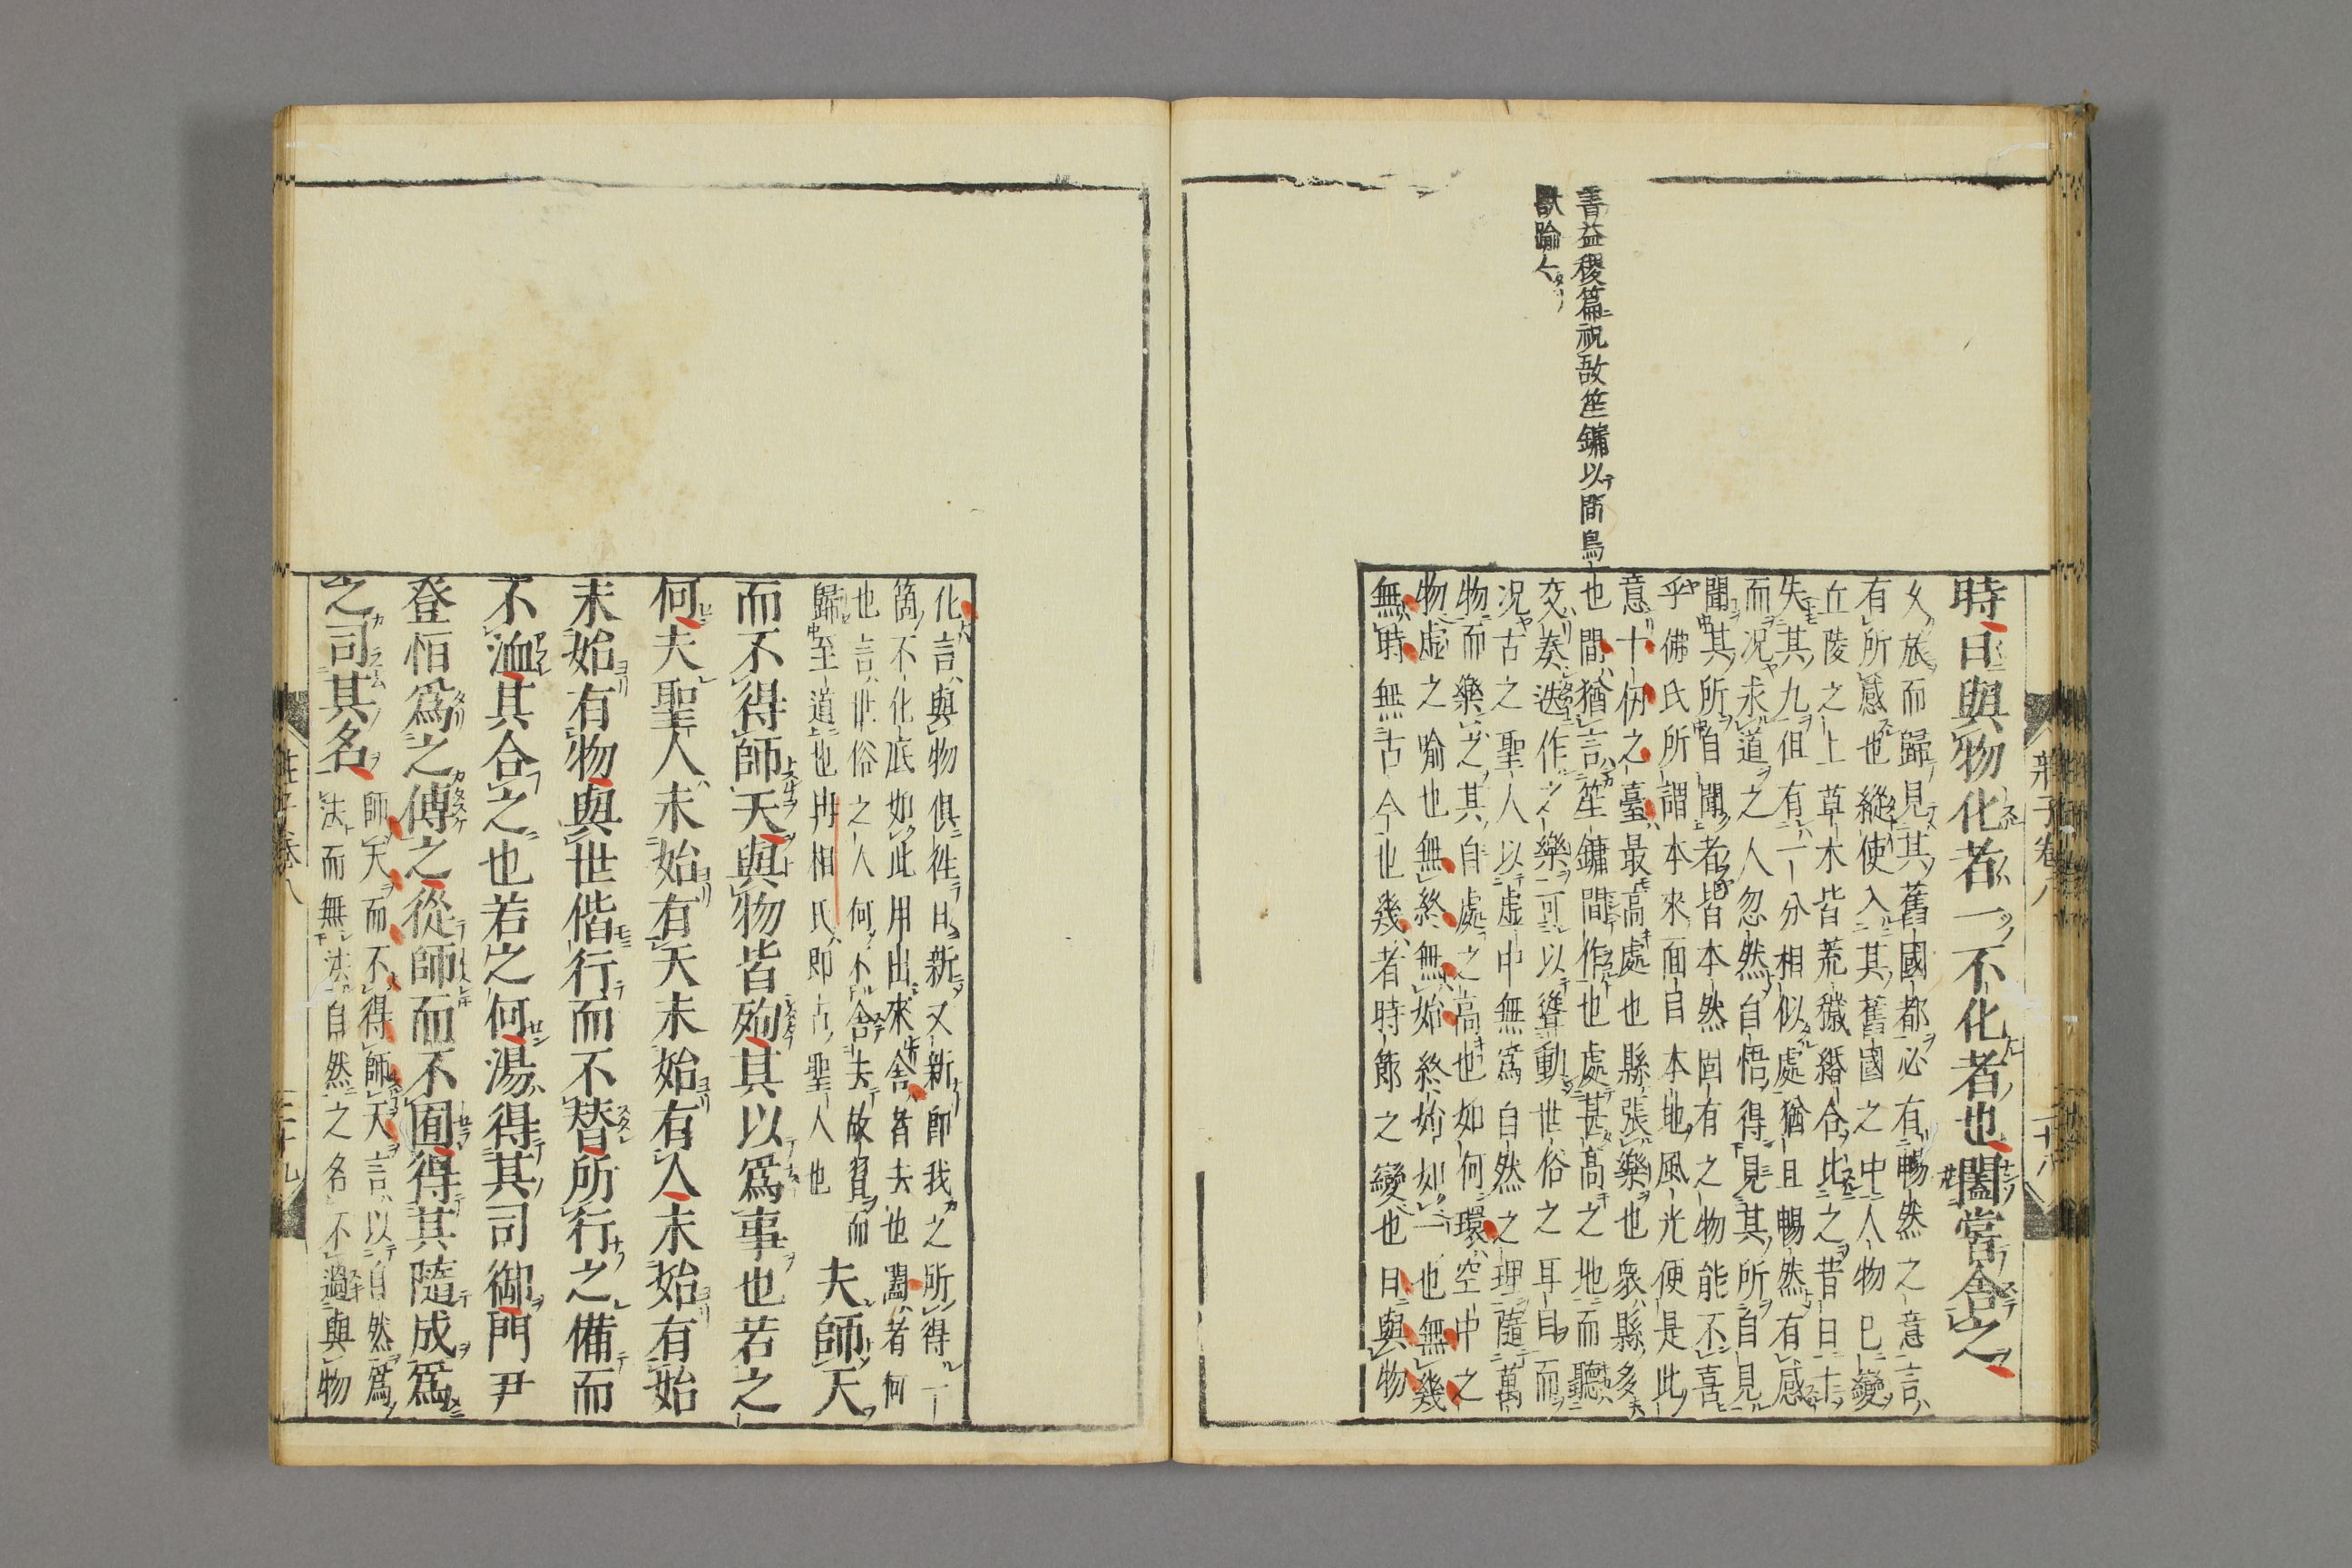 書益稷篇祝敔笙鏞以間鳥
獸蹌人
時日與物化者一不化者也闔嘗舍之
久旅而歸見其舊國都必有暢然之意言
有所感也縱使入其舊國之中人物已變
丘陵之上草木皆荒穢緡合比之昔日十
失其九但有一分相似處猶且暢然有感
而況求道之人忽然自悟得見其所自見
聞其所自聞者皆本然固有之物能不喜
乎佛氏所謂本來面目本地風光便是此
意十仞之臺最高處也縣張樂也衆縣多
也間猶言笙鏞間作也處甚高之地而聽
交奏迭作之樂可以聳動世俗之耳目而
況古之聖人以虛中無爲自然之理隨萬
物而樂之其自處之高也如何環空中之
物虛之喻也無終無始終始如一也無幾
無時無古今也幾者時節之變也日與物
莊子卷八
二十八
化言與物俱往日新又新即我之所得一
箇不化底如此用出來舍者夫也闔者何
也言世俗之人何不舍去故習而
歸至道也冉相氏即古聖人也
夫師天
而不得師天與物皆殉其以爲事也若之
何夫聖人未始有天未始有人未始有始
未始有物與世偕行而不替所行之備而
不洫其合之也若之何湯得其司御門尹
登恒爲之傅之從師而不囿得其隨成爲
之司其名
師天而不得師天言以自然爲
法而無法自然之名不過與物
莊子卷八
二十九